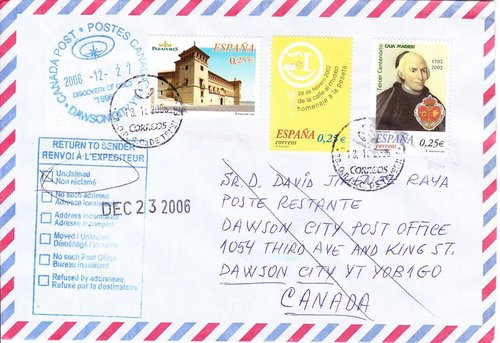 CANADA POST · POSTES CANADA
2006 -12- 27
DISCOVERY OF GOLD
1896
DAWSON CITY
RETURN TO SENDER
RENVOI À L'EXPÉDITEUR
Unclaimed
Non réclamé
No such address
Adresse inexistante
Address incomplete
Adresse incomplète
Moved / Unknown
Déménagé / Inconnu
No such Post Office
Bureau inexistant
Refused by addressee
Refusé par le destinataire
DEC 23 2006
PARADORES
ESPAÑA
0,25€
28 de febrero 2002
de la calle al museo
homenaje a la peseta
ESPAÑA
correos
0,25€
Tercer Centenario
CAJA MADRID
1702
2002
ESPAÑA
correos
0,25€
CORREOS
CORREOS
SR.D. DAVID RAYA
POSTE RESTANTE
DAWSON CITY POST OFFICE
1054 THIRD AVE AND KING ST.
DAWSON CITY YT YOB1GO
CANADA